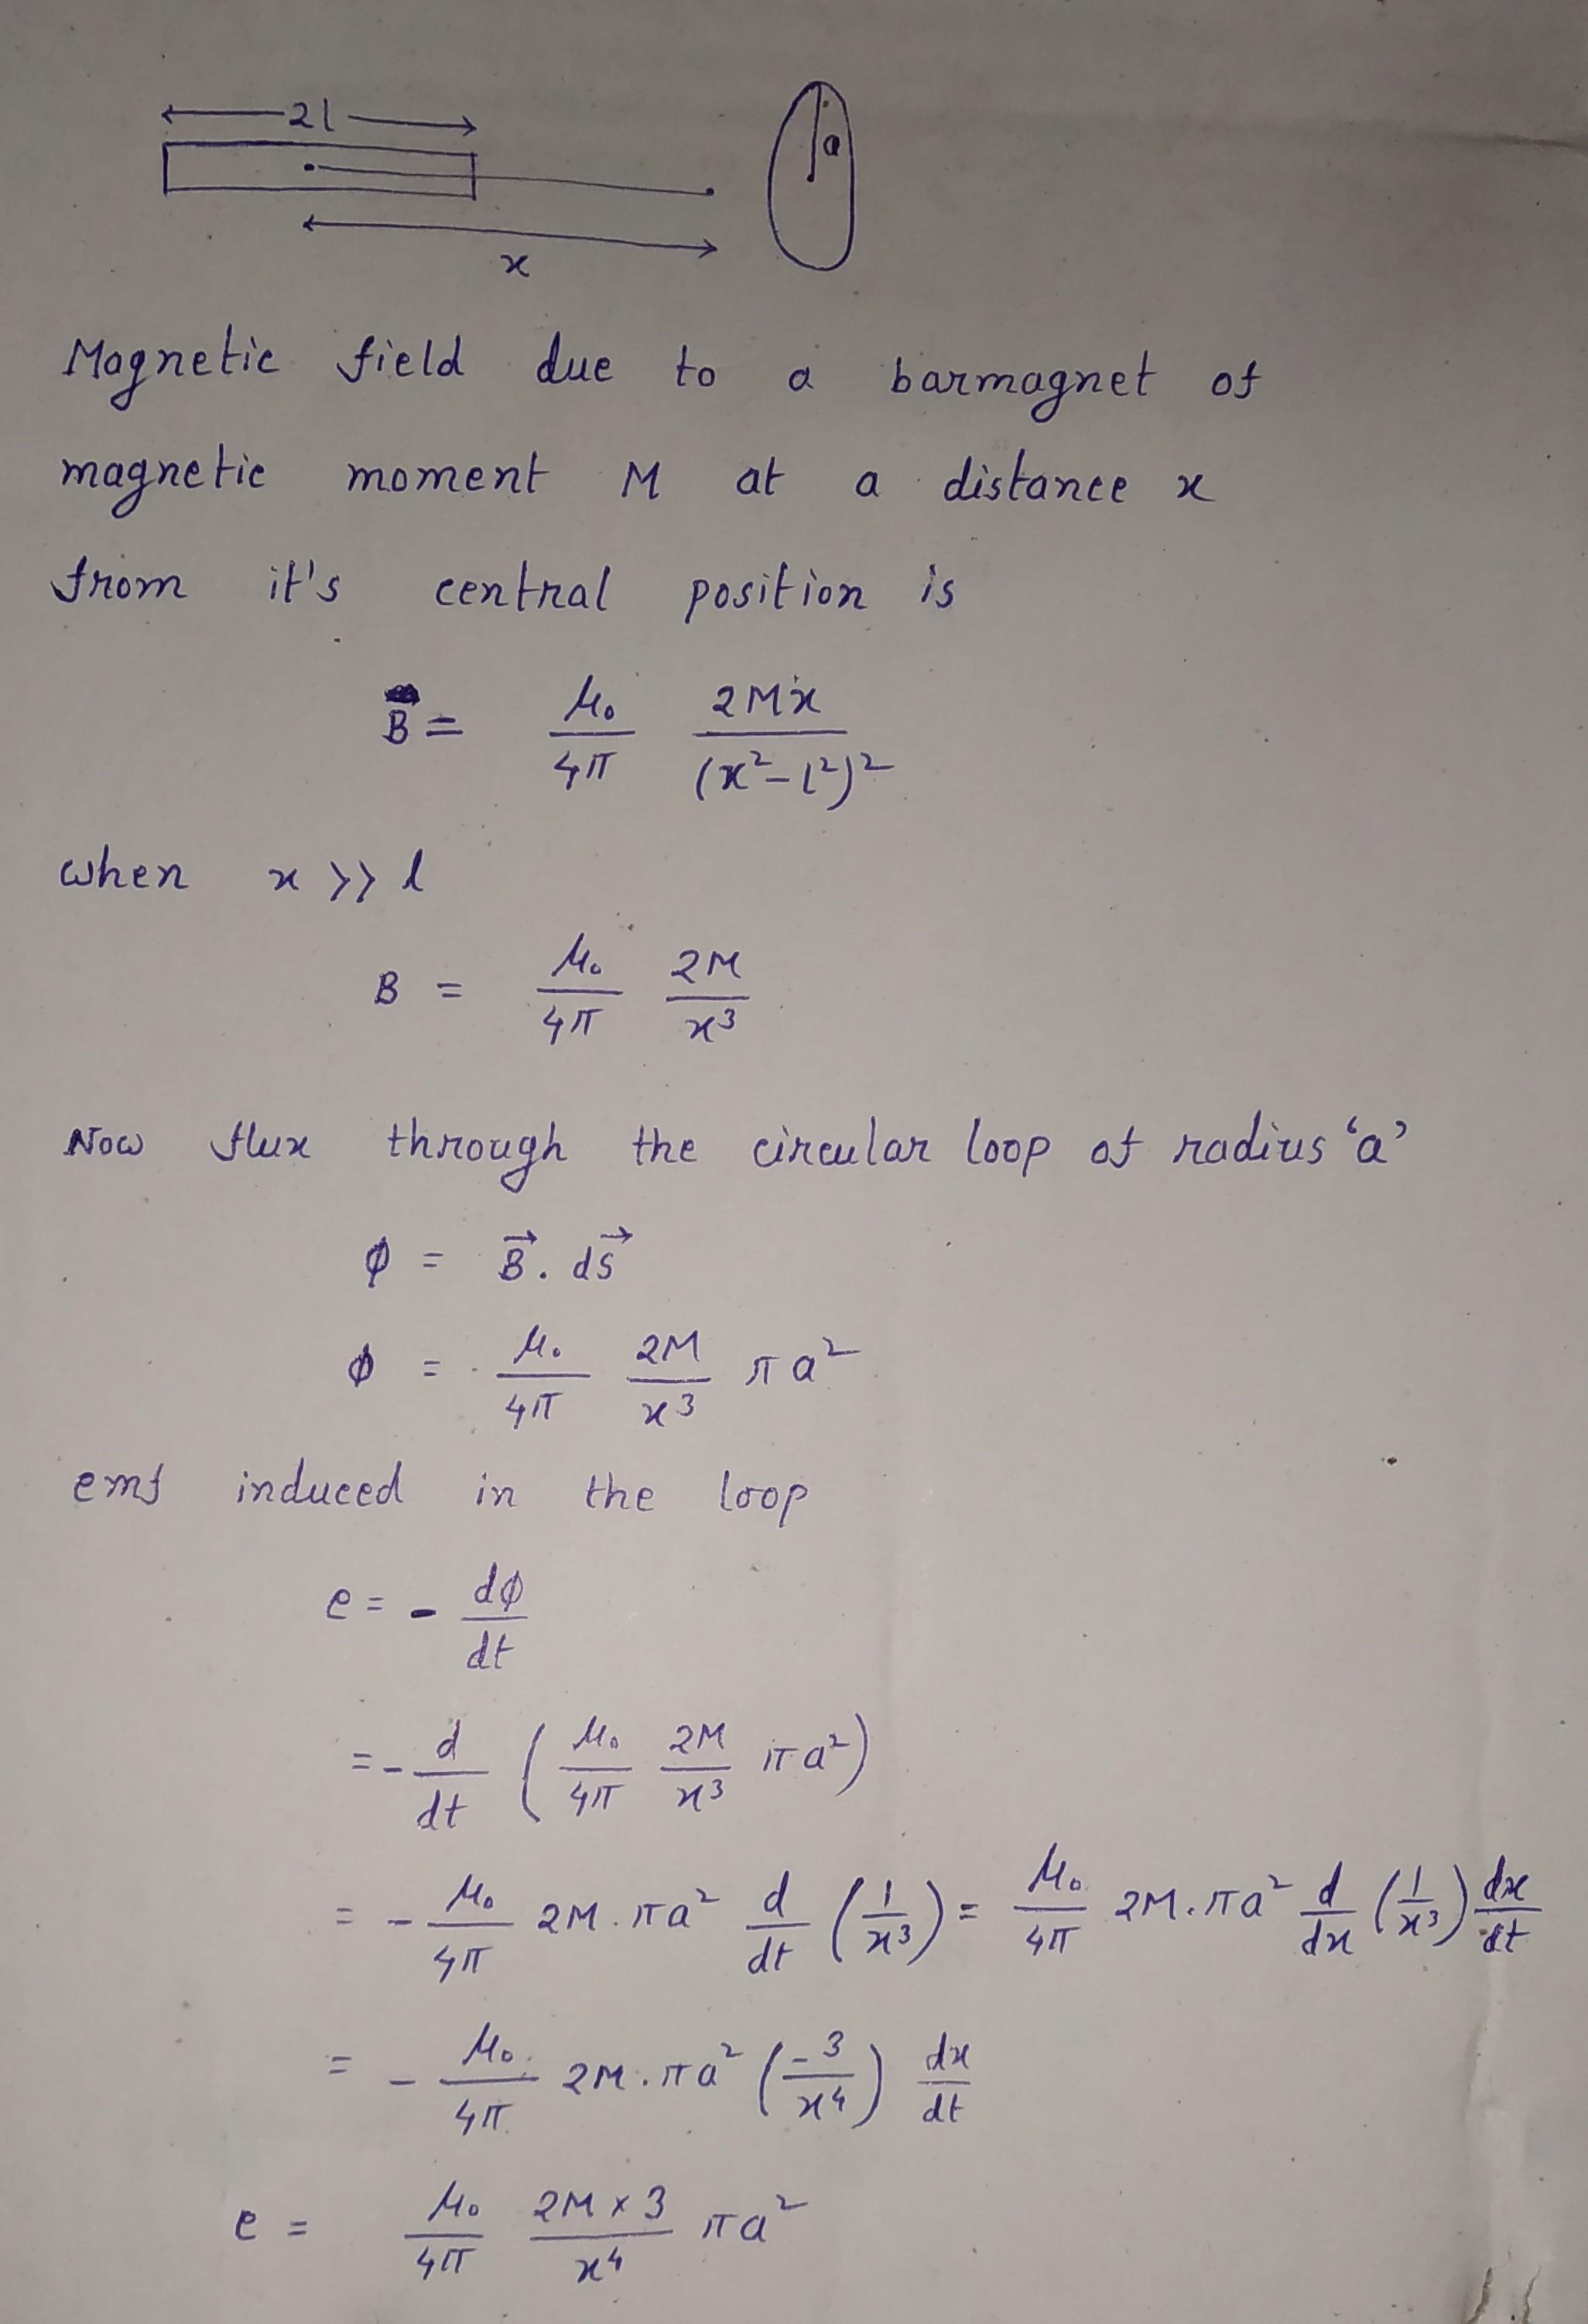 2l
a
x
Magnetic field due to a barmagnet of
magnetic moment M at a distance x
from it's central position is
B⃗ = μ₀/4π 2Mx/(x²-l²)²
when x >> l
B = μ₀/4π 2M/x³
Now flux through the circular loop of radius 'a'
ϕ = B⃗ . dS⃗
ϕ = μ₀/4π 2M/x³ πa²
emf induced in the loop
e = - dϕ/dt
= - d/dt (μ₀/4π 2M/x³ πa²)
= - μ₀/4π 2M . πa² d/dt (1/x³) = μ₀/4π 2M . πa² d/dx (1/x³) dx/dt
= - μ₀/4π 2M . πa² (-3/x⁴) dx/dt
e = μ₀/4π 2M×3/x⁴ πa²